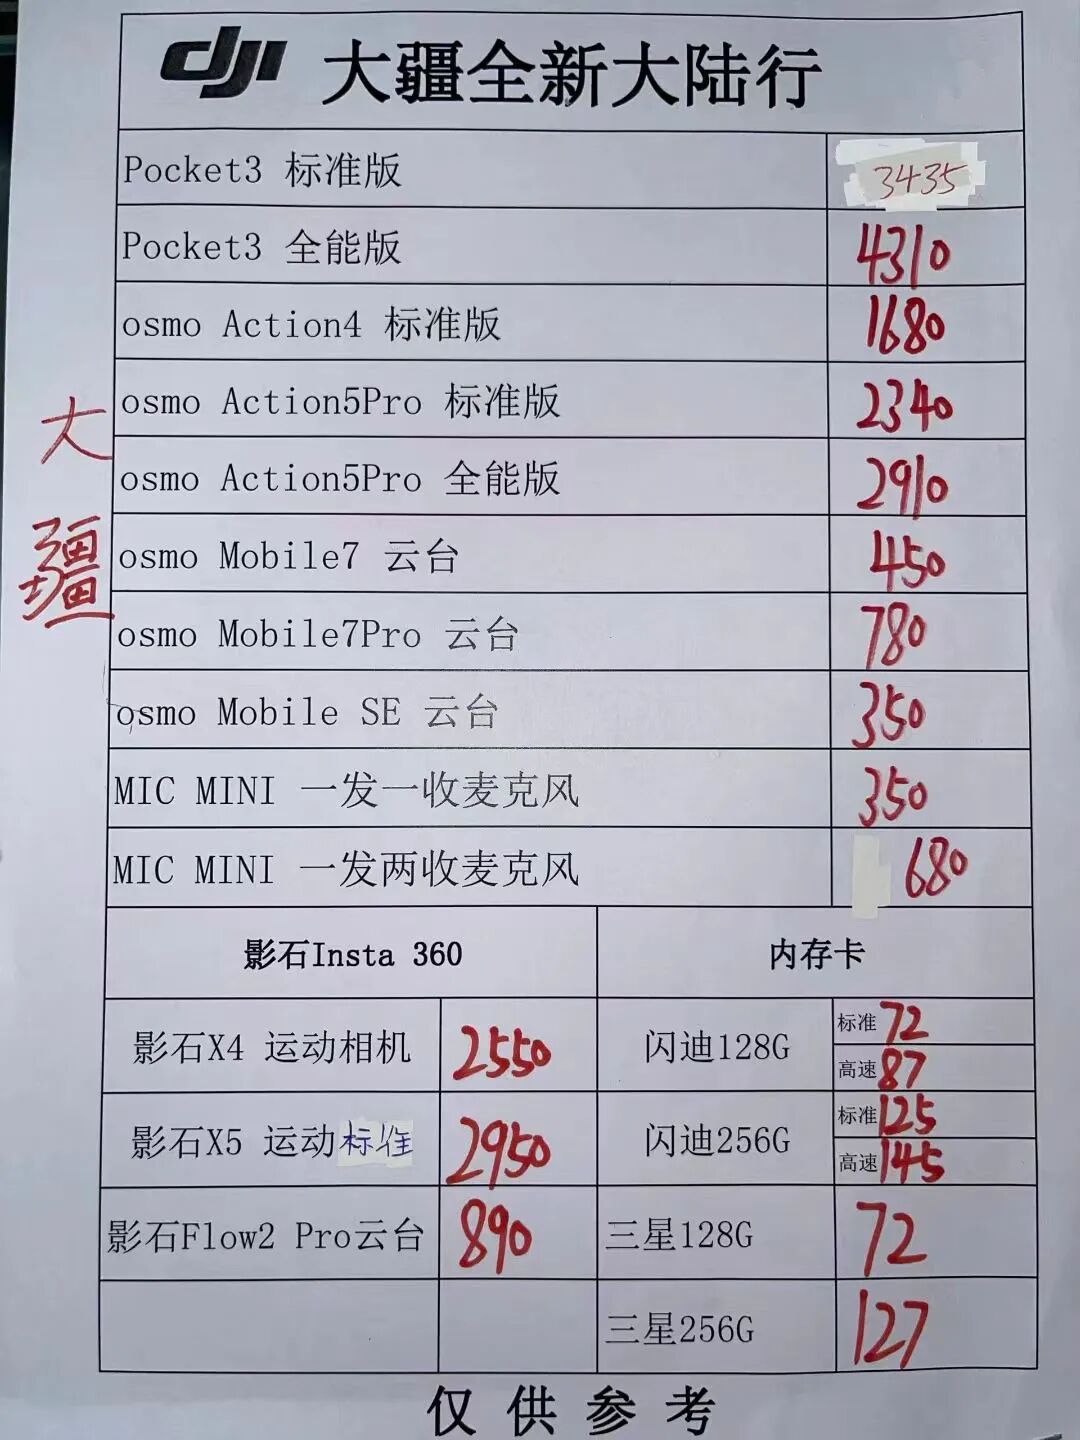 dji 大疆全新大陆行
Pocket3 标准版 3435
Pocket3 全能版 4310
osmo Action4 标准版 1680
osmo Action5Pro 标准版 2340
osmo Action5Pro 全能版 2910
osmo Mobile7 云台 450
osmo Mobile7Pro 云台 780
osmo Mobile SE 云台 350
MIC MINI 一发一收麦克风 350
MIC MINI 一发两收麦克风 680
大疆
影石Insta 360 内存卡
影石X4 运动相机 2550 闪迪128G 标准72
高速87
影石X5 运动标准 2950 闪迪256G 标准125
高速145
影石Flow2 Pro云台 890 三星128G 72
三星256G 127
仅供参考